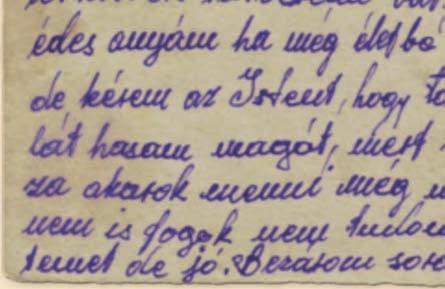 édes anyám ha még életbe
de kérem az Istent, hogy
lát hasam magát, mert
za akarok menni még
nem is fogok nem tudom
temet de jó. Bezarom soro